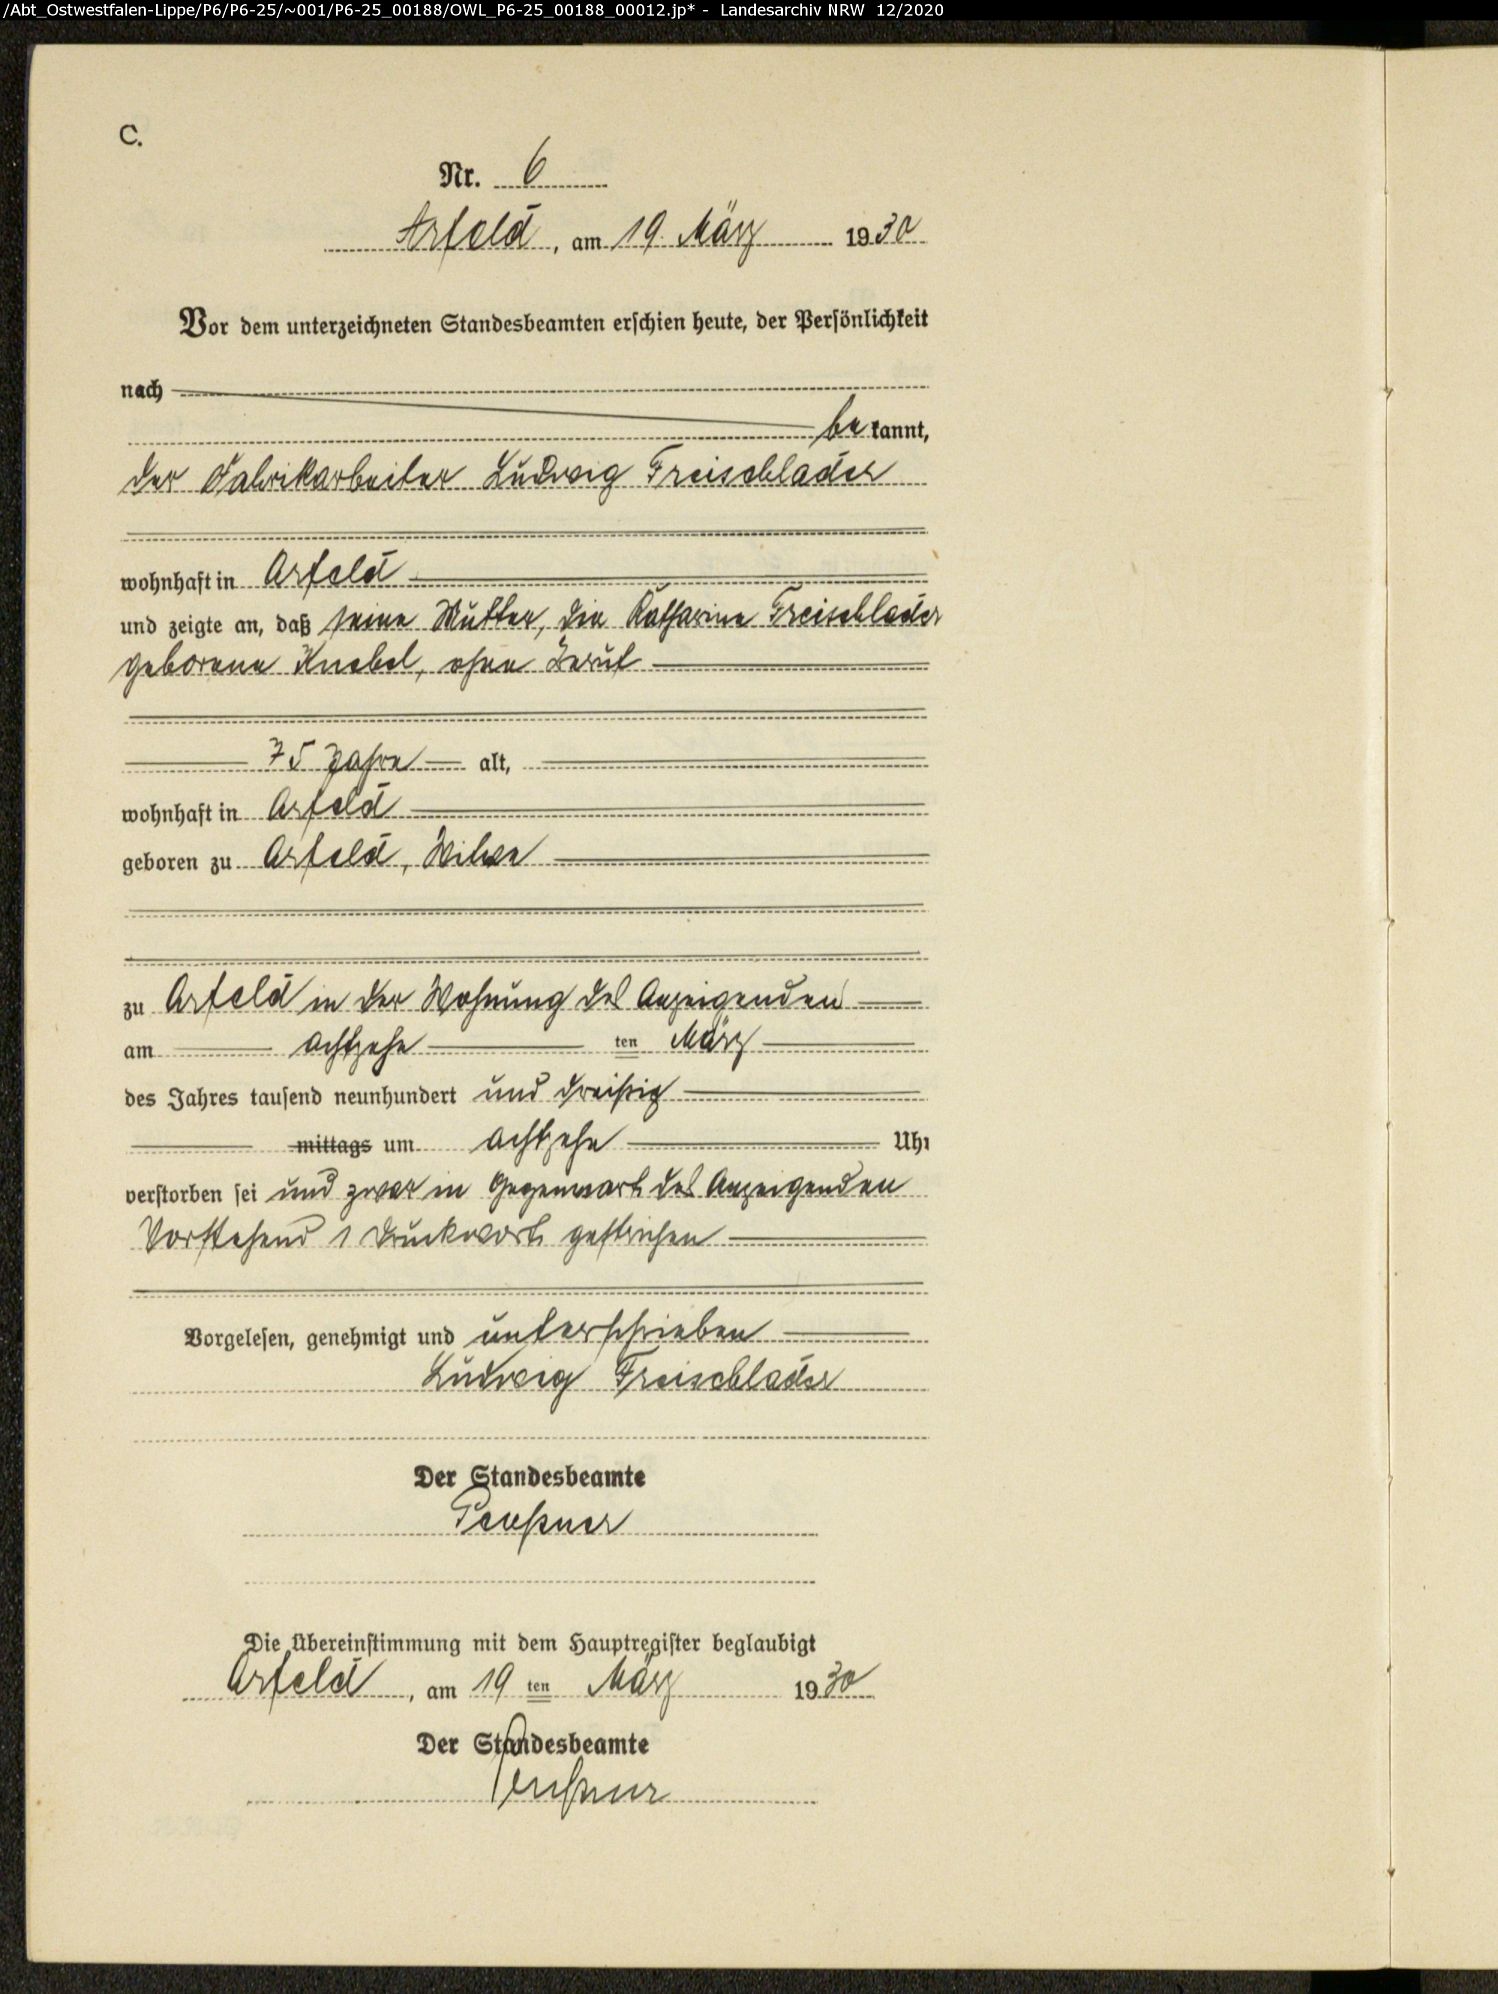 /Abt_Ostwestfalen-Lippe/P6/P6-25/~001/P6-25_00188/OWL_P6-25_00188_00012.jp* - Landesarchiv NRW 12/2020
C.
Nr. 6
Arfeld, am 19. März 1930
Vor dem unterzeichneten Standesbeamten erschien heute, der Persönlichkeit
nach
bekannt,
der Fabrikarbeiter Ludwig Freischlader
wohnhaft in Arfeld
und zeigte an, daß seine Mutter, die Katharine Freischlader
geborene Knebel, ohne Beruf
75 Jahre alt,
wohnhaft in Arfeld
geboren zu Arfeld, Witwe
zu Arfeld in der Wohnung des Anzeigenden
am achtzehn ten März
des Jahres tausend neunhundert und dreißig
mittags um achtzehn Uhr
verstorben sei und zwar in Gegenwart des Anzeigenden
Vorstehend 1 Druckwort gestrichen
Vorgelesen, genehmigt und unterschrieben
Ludwig Freischlader
Der Standesbeamte
Die Übereinstimmung mit dem Hauptregister beglaubigt
Arfeld, am 19 ten März 1930
Der Standesbeamte